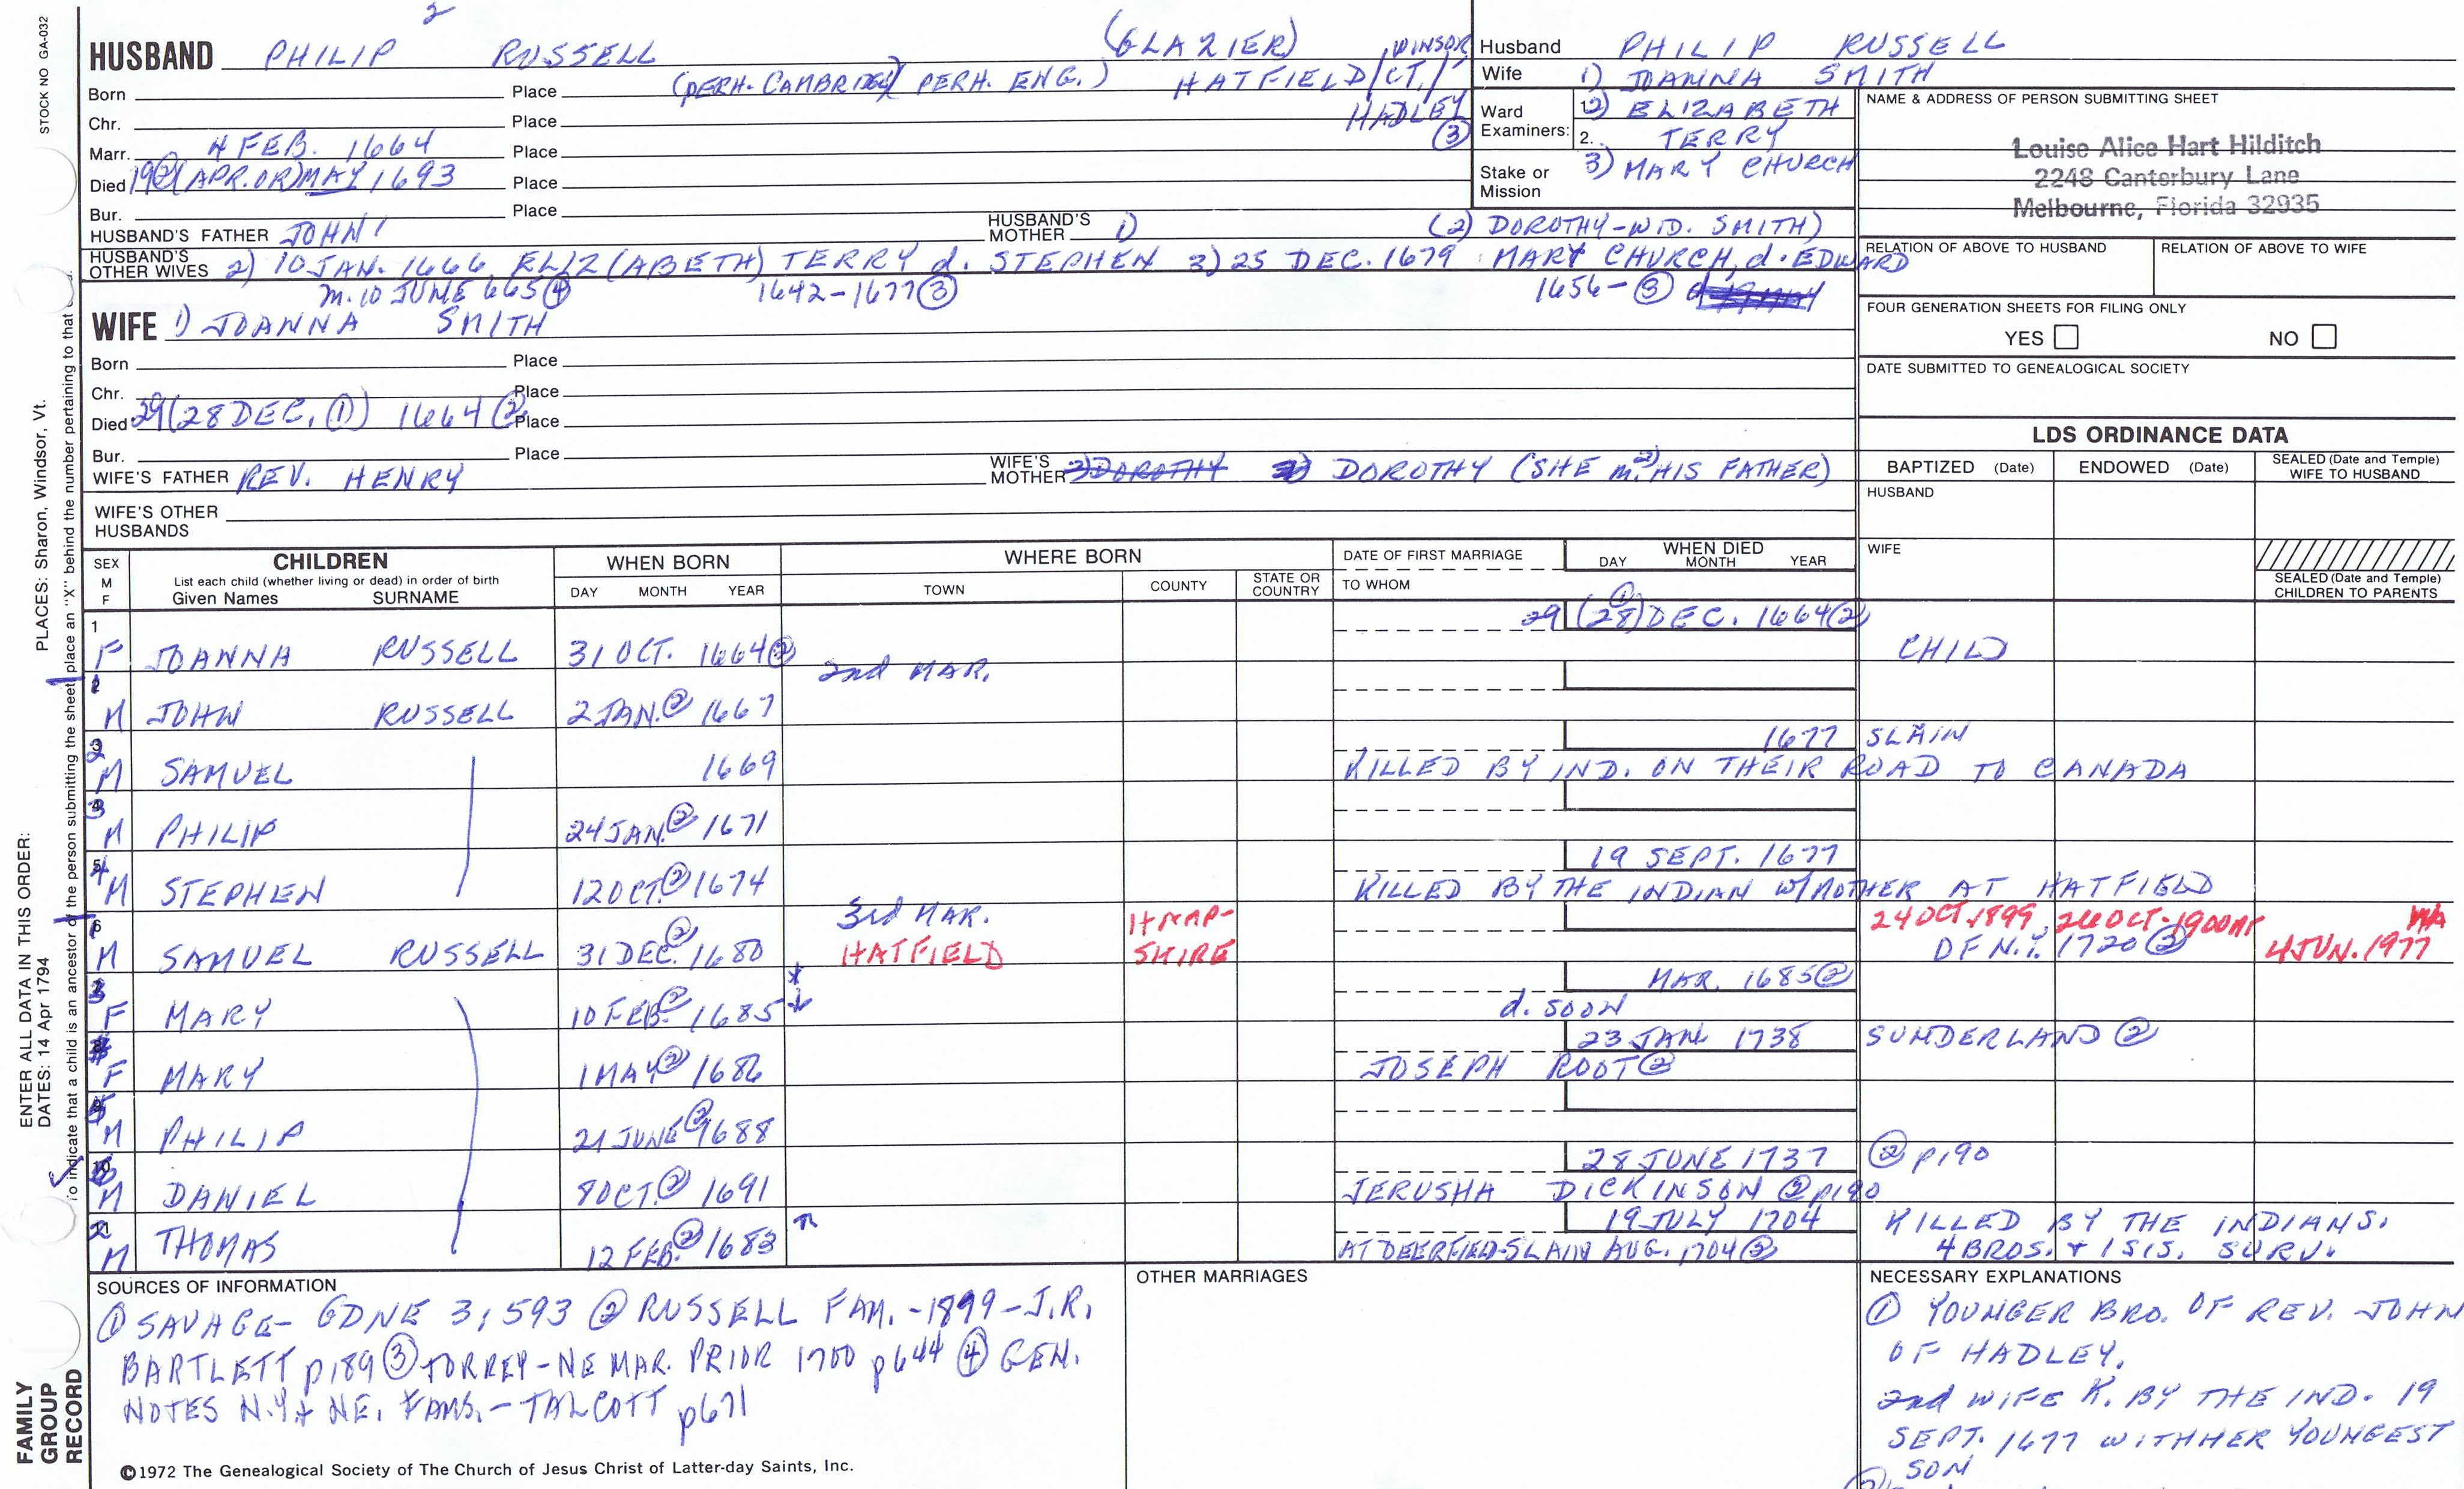 STOCK NO GA-032
2
HUSBAND PHILIP RUSSELL
(GLAZIER)
WINSOR
Born Place (PERH. CAMBRIDGE) PERH. ENG.) HATFIELD/CT./
HADLEY
Chr. Place
③
Marr. 4 FEB. 1664 Place
Died 19②(APR. OR) MAY 1693 Place
Bur. Place
HUSBAND'S FATHER JOHN 1
HUSBAND'S MOTHER 1) (2) DOROTHY-WID. SMITH)
HUSBAND'S OTHER WIVES 2) 10 JAN. 1666 ELIZ (ABETH) TERRY d. STEPHEN 3) 25 DEC. 1679 MARY CHURCH, d. EDWARD
m. 10 JUNE 665④ 1642-1677③ 1656-③
WIFE 1) JOANNA SMITH
Born Place
Chr. Place
Died 29(28 DEC. ①) 1664② Place
Bur. Place
WIFE'S FATHER REV. HENRY
WIFE'S MOTHER 2) DOROTHY DOROTHY (SHE m. 2) HIS FATHER)
WIFE'S OTHER HUSBANDS
Husband PHILIP RUSSELL
Wife 1) JOANNA SMITH
Ward Examiners: 1. 2) ELIZABETH
2. TERRY
Stake or Mission 3) MARY CHURCH
NAME & ADDRESS OF PERSON SUBMITTING SHEET
Louise Alice Hart Hilditch
2248 Canterbury Lane
Melbourne, Florida 32935
RELATION OF ABOVE TO HUSBAND RELATION OF ABOVE TO WIFE
FOUR GENERATION SHEETS FOR FILING ONLY
YES NO
DATE SUBMITTED TO GENEALOGICAL SOCIETY
LDS ORDINANCE DATA
BAPTIZED (Date) ENDOWED (Date) SEALED (Date and Temple) WIFE TO HUSBAND
HUSBAND
WIFE
SEALED (Date and Temple) CHILDREN TO PARENTS
SEX M F
CHILDREN
List each child (whether living or dead) in order of birth
Given Names SURNAME
WHEN BORN
DAY MONTH YEAR
WHERE BORN
TOWN COUNTY STATE OR COUNTRY
DATE OF FIRST MARRIAGE
TO WHOM
WHEN DIED
DAY MONTH YEAR
1 29 (28①) DEC. 1664②
F JOANNA RUSSELL 31 OCT. 1664② CHILD
2nd MAR.
M JOHN RUSSELL 2 JAN.② 1667
2 1677 SLAIN
M SAMUEL 1669 KILLED BY IND. ON THEIR ROAD TO CANADA
3
M PHILIP 24 JAN.② 1671
4 19 SEPT. 1677
M STEPHEN 12 OCT.② 1674 KILLED BY THE INDIAN W/MOTHER AT HATFIELD
6 3rd MAR. HMAP- 24 OCT. 1899
M SAMUEL RUSSELL 31 DEC.② 1680 HATFIELD SHIRE DF N.I. 1720② 4 JUN. 1977
3 MAR. 1685②
F MARY 10 FEB.② 1685 d. SOON
23 JAN 1738 SUNDERLAND②
F MARY 1 MAY② 1686 JOSEPH ROOT②
M PHILIP 21 JUNE② 1688
28 JUNE 1737 ② p190
M DANIEL 8 OCT.② 1691 JERUSHA DICKINSON② p190
2 19 JULY 1704 KILLED BY THE INDIANS.
M THOMAS 12 FEB.② 1683 AT DEERFIELD-SLAIN AUG. 1704② 4 BROS. + 1 SIS. SURV.
SOURCES OF INFORMATION
① SAVAGE- GDNE 3;593 ② RUSSELL FAM. -1899- J.R.
BARTLETT p189 ③ TORREY-NE MAR. PRIOR 1700 p644 ④ GEN.
NOTES N.Y.+ NE. FAMS.-TALCOTT p671
©1972 The Genealogical Society of The Church of Jesus Christ of Latter-day Saints, Inc.
OTHER MARRIAGES
NECESSARY EXPLANATIONS
① YOUNGER BRO. OF REV. JOHN
OF HADLEY.
2nd WIFE K. BY THE IND. 19
SEPT. 1677 WITH HER YOUNGEST
SON
PLACES: Sharon, Windsor, Vt.
ENTER ALL DATA IN THIS ORDER:
DATES: 14 Apr 1794
To indicate that a child is an ancestor of the person submitting the sheet place an "X" behind the number pertaining to that
FAMILY
GROUP
RECORD